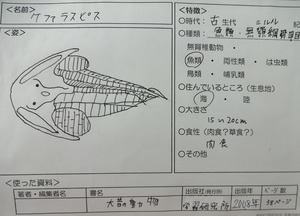 <名前>
ケファラスピス
<姿>
<特徴>
○時代: 古生代 シルル紀
○種類: 魚類・無顎綱
無脊椎動物・
魚類 ・両生類 ・は虫類
鳥類 ・哺乳類
○住んでいるところ(生息地)
海 ・ 陸
○大きさ
15〜20cm
○食性(肉食?草食?)
肉食
○その他
<使った資料>
著者・編集者名 書名 出版社(発行所) 出版年 ページ数
大昔の動物 学習研究所 2008年 38ページ